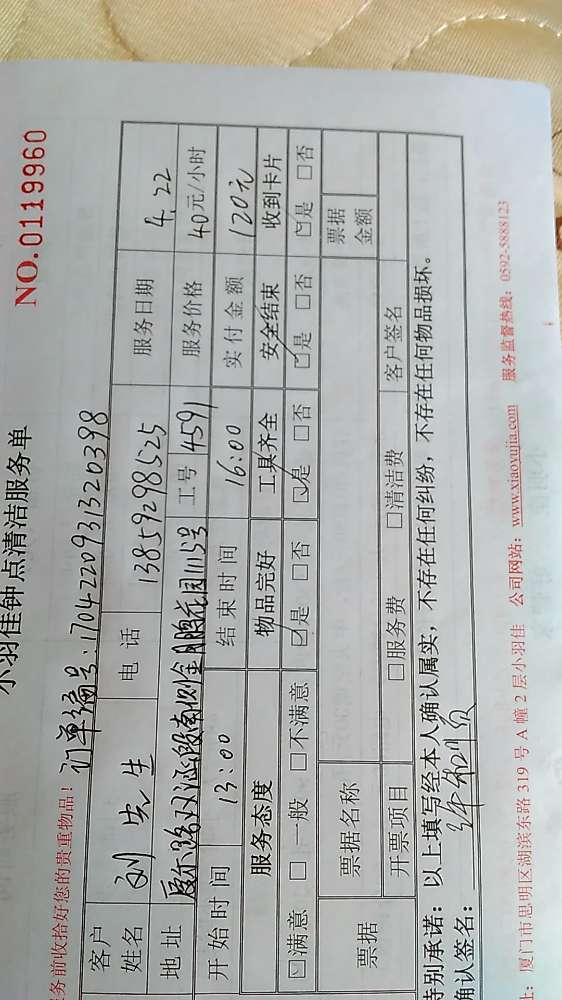 小羽佳钟点清洁服务单
NO.0119960
务前收拾好您的贵重物品！ 订单编号:1704220931320398
客户姓名 刘先生 电话 13859298525 服务日期 4.22
地址 南侧金鹏花园1115号 工号 4591 服务价格 40元/小时
开始时间 13:00 结束时间 16:00 实付金额 120元
服务态度 物品完好 工具齐全 安全结束 收到卡片
☑满意 □一般 □不满意 ☑是 □否 ☑是 □否 ☑是 □否 ☑是 □否
票据 票据名称 票据金额
开票项目 □服务费 □清洁费 客户签名
特别承诺：以上填写经本人确认属实，不存在任何纠纷，不存在任何物品损坏。
确认签名：
址：厦门市思明区湖滨东路 319 号 A 幢 2 层小羽佳 公司网站：www.xiaoyujia.com 服务监督热线：0592-5888123